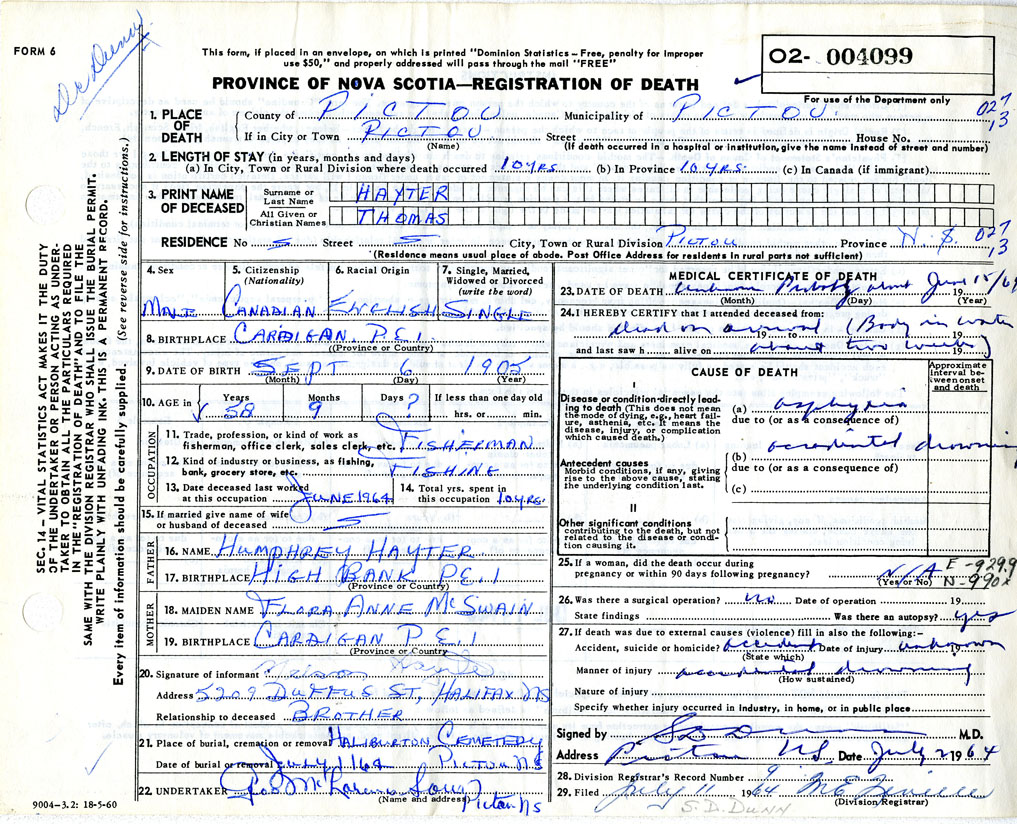 Dr Dunn
FORM 6
This form, if placed in an envelope, on which is printed "Dominion Statistics – Free, penalty for improper
use $50," and properly addressed will pass through the mail "FREE"
PROVINCE OF NOVA SCOTIA—REGISTRATION OF DEATH
02- 004099
For use of the Department only
027
13
1. PLACE OF DEATH
County of PICTOU Municipality of PICTOU
If in City or Town PICTOU Street House No.
(Name) (If death occurred in a hospital or institution, give the name instead of street and number)
2. LENGTH OF STAY (in years, months and days)
(a) In City, Town or Rural Division where death occurred 10 yrs. (b) In Province 10 yrs. (c) In Canada (if immigrant)
3. PRINT NAME OF DECEASED
Surname or Last Name HAYTER
All Given or Christian Names THOMAS
RESIDENCE No Street City, Town or Rural Division PICTOU Province N.S. 027
13
(Residence means usual place of abode. Post Office Address for residents in rural parts not sufficient)
SEC. 14 – VITAL STATISTICS ACT MAKES IT THE DUTY
OF THE UNDERTAKER OR PERSON ACTING AS UNDER-
TAKER TO OBTAIN ALL THE PARTICULARS REQUIRED
IN THE "REGISTRATION OF DEATH" AND TO FILE THE
SAME WITH THE DIVISION REGISTRAR WHO SHALL ISSUE THE BURIAL PERMIT.
WRITE PLAINLY WITH UNFADING INK. THIS IS A PERMANENT RECORD.
Every item of information should be carefully supplied. (See reverse side for instructions.)
4. Sex
MALE
5. Citizenship
(Nationality)
CANADIAN
6. Racial Origin
ENGLISH
7. Single, Married,
Widowed or Divorced
(write the word)
SINGLE
8. BIRTHPLACE CARDIGAN. P.E.I.
(Province or Country)
9. DATE OF BIRTH SEPT 6 1905
(Month) (Day) (Year)
10. AGE in Years Months Days? If less than one day old
58 9 hrs. or min.
OCCUPATION
11. Trade, profession, or kind of work as
fisherman, office clerk, sales clerk, etc. FISHERMAN
12. Kind of industry or business, as fishing,
bank, grocery store, etc. FISHING
13. Date deceased last worked
at this occupation JUNE 1964
14. Total yrs. spent in
this occupation 10 yrs.
15. If married give name of wife
or husband of deceased
FATHER
16. NAME HUMPHREY HAYTER
17. BIRTHPLACE HIGH BANK P.E.I
(Province or Country)
MOTHER
18. MAIDEN NAME FLORA ANNE McSWAIN
19. BIRTHPLACE CARDIGAN P.E.I
(Province or Country)
20. Signature of informant
Address 5209 DUFFUS ST, HALIFAX NS
Relationship to deceased BROTHER
21. Place of burial, cremation or removal HALIBURTON CEMETERY
Date of burial or removal July 1 1964 PICTOU NS
22. UNDERTAKER
(Name and address) Pictou NS
9004–3.2: 18-5-60
MEDICAL CERTIFICATE OF DEATH
23. DATE OF DEATH unknown Probably about June 15/64
(Month) (Day) (Year)
24. I HEREBY CERTIFY that I attended deceased from:
dead on arrival (Body in water
19 to 19
and last saw h alive on about two weeks) 19
CAUSE OF DEATH
Approximate
interval be-
tween onset
and death
I
Disease or condition directly lead-
ing to death (This does not mean
the mode of dying, e.g., heart fail-
ure, asthenia, etc. It means the
disease, injury, or complication
which caused death.)
(a) asphyxia
due to (or as a consequence of)
Antecedent causes
Morbid conditions, if any, giving
rise to the above cause, stating
the underlying condition last.
(b) accidental drowning
due to (or as a consequence of)
(c)
II
Other significant conditions
contributing to the death, but not
related to the disease or condi-
tion causing it.
25. If a woman, did the death occur during
pregnancy or within 90 days following pregnancy? N/A
(Yes or No)
E-929.9
N-990x
26. Was there a surgical operation? no Date of operation 19
State findings Was there an autopsy? yes
27. If death was due to external causes (violence) fill in also the following:–
Accident, suicide or homicide? accident Date of injury unknown 19
(State which)
Manner of injury accidental drowning
(How sustained)
Nature of injury
Specify whether injury occurred in industry, in home, or in public place
Signed by M.D.
Address Pictou N.S. Date July 2 1964
28. Division Registrar's Record Number 9
29. Filed July 11 1964
(Division Registrar)
S. D. DUNN